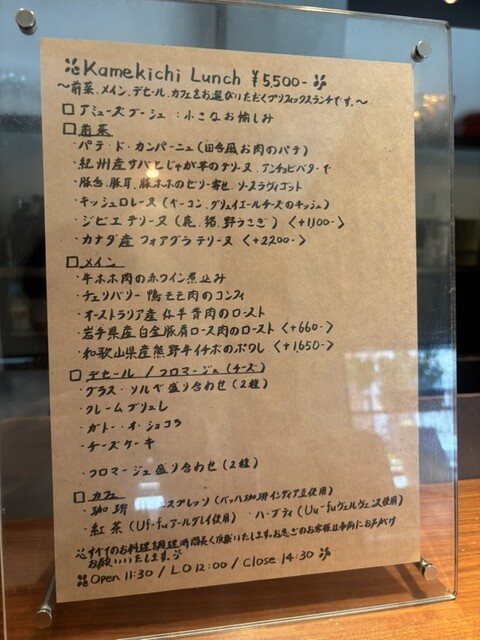 Kamekichi Lunch ¥5,500-
〜前菜、メイン、デセール、カフェをお選びいただくプリフィックスランチです。〜
□ アミューズブーシュ：小さなお愉しみ
□ 前菜
・パテ・ド・カンパーニュ(田舎風お肉のパテ)
・紀州産サバとじゃが芋のテリーヌ アンチョビバターで
・豚舌、豚耳、豚ホホのゼリー寄せ ソースラヴィゴット
・キッシュロレーヌ (ベーコン、グリュイエールチーズのキッシュ)
・ジビエ テリーヌ (鹿、猪、野うさぎ) <+1100->
・カナダ産 フォアグラ テリーヌ <+2200->
□ メイン
・牛ホホ肉の赤ワイン煮込み
・チェリバリー 鴨モモ肉のコンフィ
・オーストラリア産 仔羊背肉のロースト
・岩手県産白金豚肩ロース肉のロースト <+660->
・和歌山県産熊野牛イチボのポワレ <+1,650->
□ デセール / フロマージュ (チーズ)
・グラス・ソルベ盛り合わせ (2種)
・クレームブリュレ
・ガトー・オ・ショコラ
・チーズケーキ
・フロマージュ盛り合わせ (2種)
□ カフェ
・珈琲 エスプレッソ (バッハ珈琲インディア豆使用)
・紅茶 (Uf-fuアールグレイ使用) ・ハーブティ (Uu-fuヴェルヴェンヌ使用)
すべてのお料理調理時間長く頂戴いたします。お急ぎのお客様は事前にお声がけ
お願いいたします。
Open 11:30 / L.O 12:00 / Close 14:30